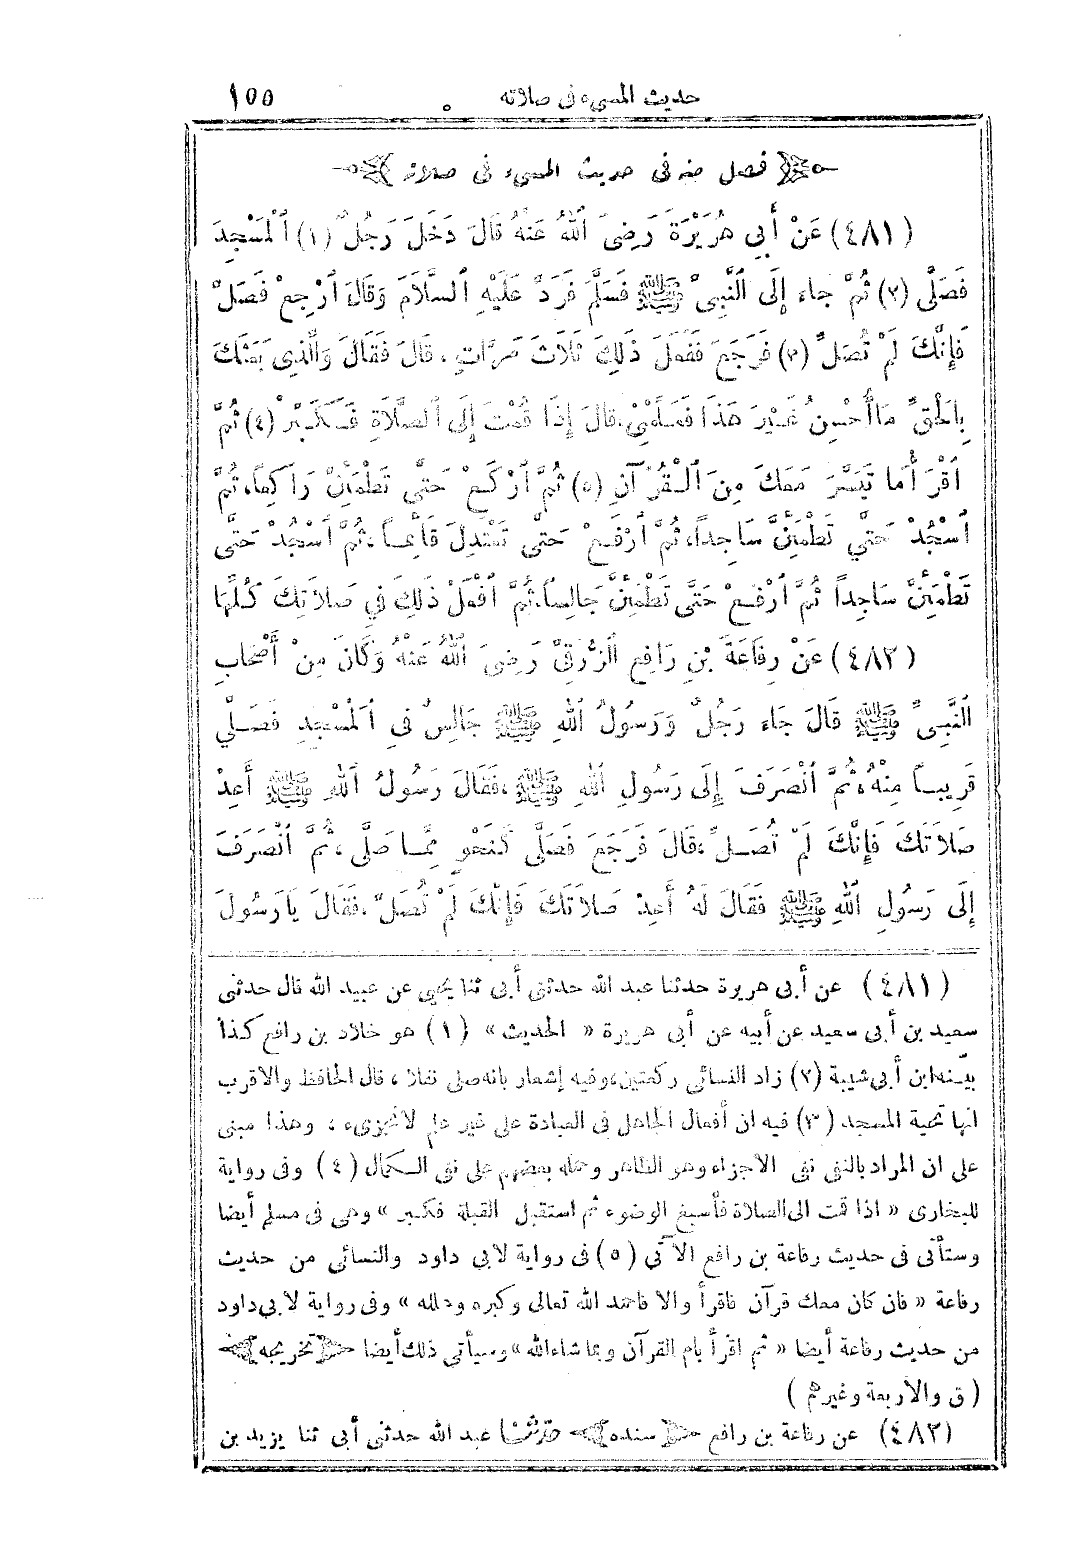 حديث المسيء في صلاته ١٥٥
فصل منه في حديث المسيء في صلاته
(٤٨١) عَنْ أَبِي هُرَيْرَةَ رَضِيَ اللهُ عَنْهُ قَالَ دَخَلَ رَجُلٌ (١) اَلْمَسْجِدَ
فَصَلَّى (٢) ثُمَّ جاء إِلَى النَّبِيِّ ﷺ فَسَلَّمَ فَرَدَّ عَلَيْهِ السَّلَامَ وَقَالَ اَرْجِعْ فَصَلِّ
فَإِنَّكَ لَمْ تُصَلِّ (٣) فَرَجَعَ فَفَعَلَ ذَلِكَ ثَلَاثَ مَرَّاتٍ ، قَالَ فَقَالَ وَالَّذِي بَعَثَكَ
بِالْحَقِّ مَا أُحْسِنُ غَيْرَ هَذَا فَعَلِّمْنِي ، قَالَ إِذَا قُمْتَ إِلَى الصَّلَاةِ فَكَبِّرْ (٤) ثُمَّ
اَقْرَأْ مَا تَيَسَّرَ مَعَكَ مِنَ الْقُرْآنِ (٥) ثُمَّ اَرْكَعْ حَتَّى تَطْمَئِنَّ رَاكِعاً ، ثُمَّ
اَسْجُدْ حَتَّى تَطْمَئِنَّ سَاجِداً ، ثُمَّ اَرْفَعْ حَتَّى تَعْتَدِلَ قَائِماً ، ثُمَّ اَسْجُدْ حَتَّى
تَطْمَئِنَّ سَاجِداً ثُمَّ اَرْفَعْ حَتَّى تَطْمَئِنَّ جَالِساً ، ثُمَّ اَفْعَلْ ذَلِكَ فِي صَلَاتِكَ كُلِّهَا
(٤٨٢) عَنْ رِفَاعَةَ بْنِ رَافِعٍ الزُّرَقِيِّ رَضِيَ اللهُ عَنْهُ وَكَانَ مِنْ أَصْحَابِ
النَّبِيِّ ﷺ قَالَ جَاءَ رَجُلٌ وَرَسُولُ اللهِ ﷺ جَالِسٌ فِي الْمَسْجِدِ فَصَلَّى
قَرِيباً مِنْهُ ، ثُمَّ اَنْصَرَفَ إِلَى رَسُولِ اللهِ ﷺ ، فَقَالَ رَسُولُ اللهِ ﷺ أَعِدْ
صَلَاتَكَ فَإِنَّكَ لَمْ تُصَلِّ ، قَالَ فَرَجَعَ فَصَلَّى كَنَحْوٍ مِمَّا صَلَّى ، ثُمَّ اَنْصَرَفَ
إِلَى رَسُولِ اللهِ ﷺ فَقَالَ لَهُ أَعِدْ صَلَاتَكَ فَإِنَّكَ لَمْ تُصَلِّ ، فَقَالَ يَا رَسُولَ
(٤٨١) عن أبى هريرة حدثنا عبد الله حدثنى أبى ثنا يحيى عن عبيد الله قال حدثنى
سعيد بن أبى سعيد عن أبيه عن أبى هريرة « الحديث » (١) هو خلاد بن رافع كذا
بيّنه ابن أبى شيبة (٢) زاد النسائى ركعتين ، وفيه إشعار بانه صلى نفلا ، قال الحافظ والاقرب
انها تحية المسجد (٣) فيه ان أفعال الجاهل فى العبادة على غير علم لا تجزىء ، وهذا مبنى
على ان المراد بالنفى نفى الاجزاء وهو الظاهر وحمله بعضهم على نفى الكمال (٤) وفى رواية
للبخارى « اذا قمت الى الصلاة فأسبغ الوضوء ثم استقبل القبلة فكبر » وهى فى مسلم أيضا
وستأتى فى حديث رفاعة بن رافع الآتى (٥) فى رواية لابى داود والنسائى من حديث
رفاعة « فان كان معك قرآن فاقرأ والا فاحمد الله تعالى وكبره وهلله » وفى رواية لابى داود
من حديث رفاعة أيضا « ثم اقرأ بام القرآن وبما شاء الله » وسيأتى ذلك أيضا تخريجه
(ق والأربعة وغيرهم)
(٤٨٢) عن رفاعة بن رافع سنده حدثنا عبد الله حدثنى أبى ثنا يزيد بن